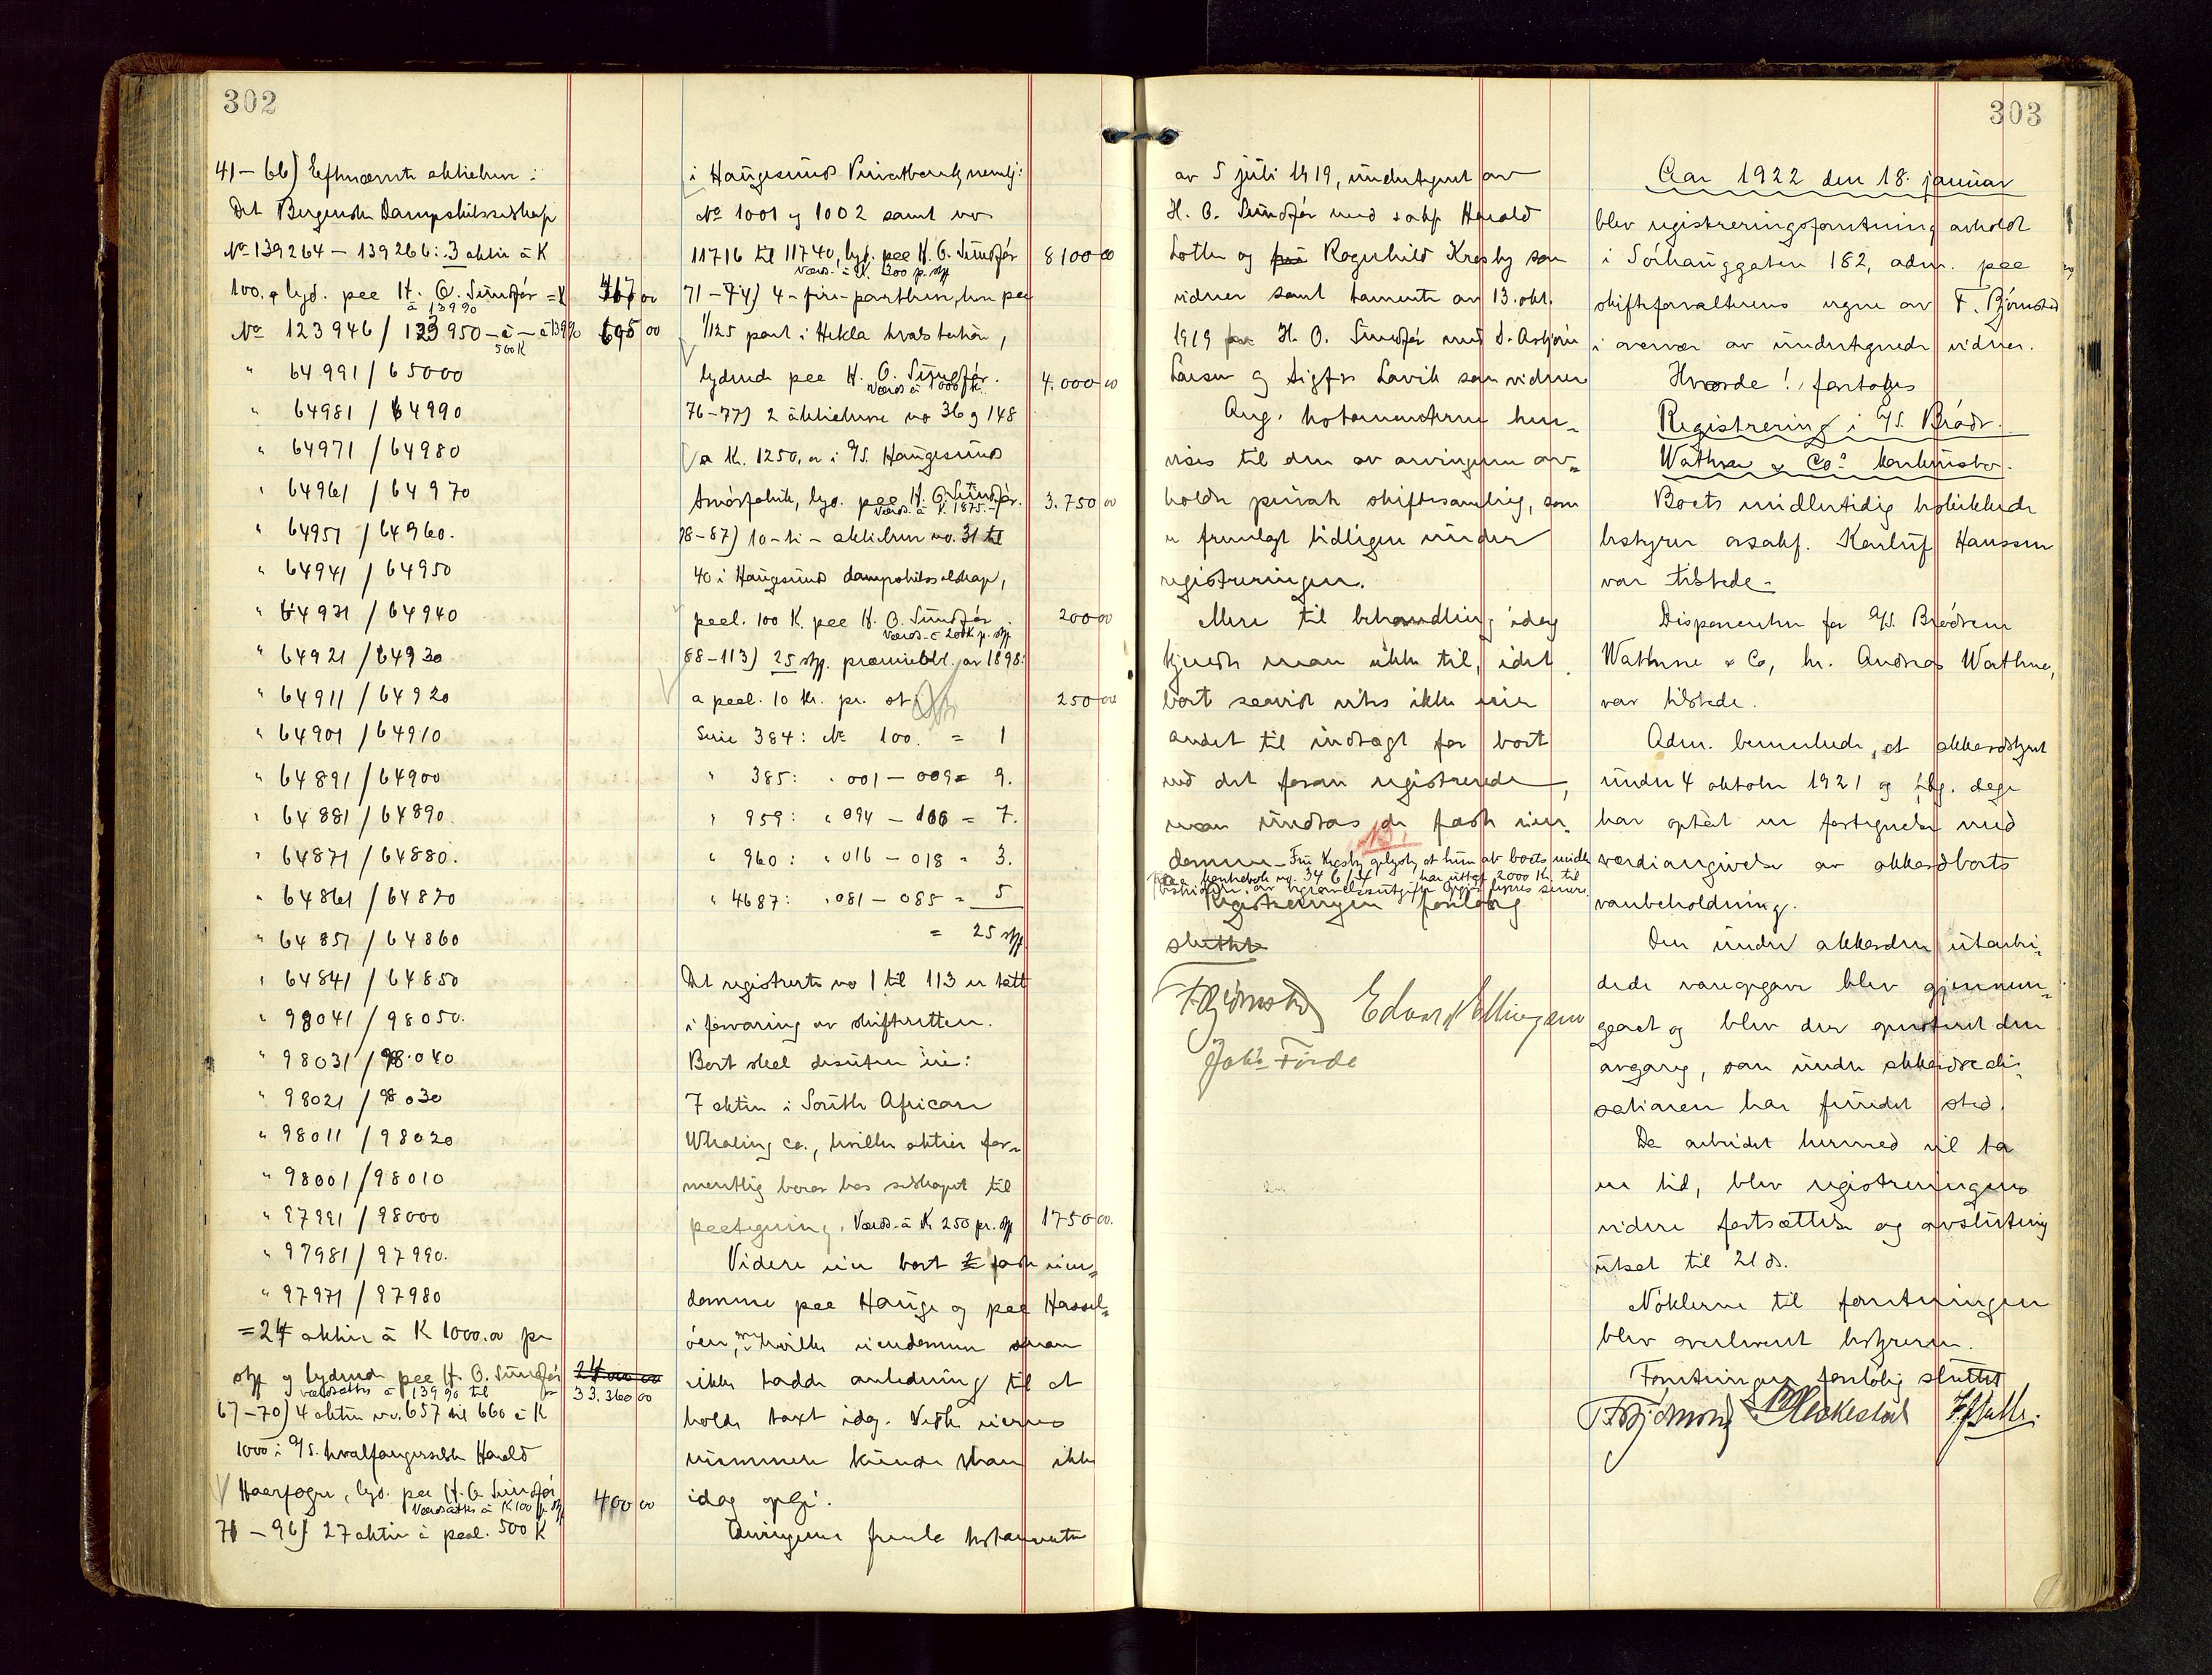 302
41 – 66) Eftnævnte aktiebreve:
Det Bergenske Dampskibsselskap
No 139264 – 139266: 3 aktier à K
100. lyd. paa H. O. Sundfør = K 417 00
à 139 90
No 123946 / 123950 – à – à 139 90 695 00
500 K
" 64991 / 65000
" 64981 / 64990
" 64971 / 64980
" 64961 / 64970
" 64951 / 64960.
" 64941 / 64950
" 64931 / 64940
" 64921 / 64930
" 64911 / 64920
" 64901 / 64910
" 64891 / 64900
" 64881 / 64890.
" 64871 / 64880.
" 64861 / 64870
" 64851 / 64860
" 64841 / 64850
" 98041 / 98050.
" 98031 / 98040
" 98021 / 98030
" 98011 / 98020
" 98001 / 98010
" 97991 / 98000
" 97981 / 97990.
" 97971 / 97980
= 24 aktier à K 1000.00 pr
stk og lydende paa H. O. Sundfør 24 000 00
værdsættes à 139 90 til 33.360 00
67 – 70) 4 aktier no. 657 til 660 à K
1000 i A/S. hvalfangerselsk Harald
Haarfagre, lyd. paa H. O. Sundfør
Værdsættes à K 100 pr stk 400 00
71 – 96) 27 aktier à paal. 500 K
i Haugesunds Privatbank, nemlig:
No 1001 og 1002 samt no
11716 til 11740, lyd. paa H. O. Sundfør 8100 00
Værds. à K. 300 p. stk
71 – 74) 4 – fire – partbreve, hver paa
1/125 part i Hekla hvalstation,
lydende paa H. O. Sundfør.
Værds à 1000 K. 4.000 00
76 – 77) 2 aktiebreve no 36 og 148
a K. 1250.00 i A/S. Haugesunds
Smørfabrik, lyd. paa H. O. Sundfør. 3.750 00
Værds. à K. 1875.–
78 – 87) 10 – ti – aktiebrev no. 31 til
40 i Haugesunds dampskibsselskap,
paal. 100 K. paa H. O. Sundfør 200 00
Værds. à 20 K p. stk
88 – 113) 25 stk. præmieobl. av 1898:
a paal. 10 Kr. pr. st 250 00
Serie 384: No 100. = 1
" 385: " 001 – 009 = 9.
" 959: " 094 – 100 = 7.
" 960: " 016 – 018 = 3.
" 4687: " 081 – 085 = 5
= 25 stk
Det registrerte no 1 til 113 er tatt
i forvaring av skifteretten.
Boet skal desuten eie:
7 aktier i South African
Whaling Co., hvilke aktier for-
mentlig beror hos selskapet til
paategning. Værds. à K 250 pr. stk 1750 00.
Videre eier boet 2 faste eien-
domme paa Hauge og paa Hassel-
øen, hvilke eiendomme man
ikke hadde anledning til at
holde taxt idag. Disse eiernes
nummere kunde man ikke
idag opgi.
Arvingerne fremla testamente
av 5 juli 1919, undertegnet av
H. O. Sundfør med sakf Harald
Lothe og fru Ragnhild Kresby som
vidner samt testamente av 13. okt.
1919 fra H. O. Sundfør med S. Asbjørn
Larsen og Sigfrs Lavik som vidner
Ang. testamenterne hen-
vises til den av arvingerne av-
holdte private skiftesamling, som
er fremlagt tidligere under
registreringen.
Mere til behandling idag
kjendte man ikke til, idet
boet saavidt vites ikke eier
andet til indtægt for boet
end det foran registrerede,
man undtas de faste eien-
13.
domme – Fru Kresby oplyste, at hun av boets midler
paa bankbok no. 34614 har uttat 2000 Kr. til
bestridelse av begravelsesutgifter. Opgjør leveres senere.
Registreringen foreløbig
sluttet
FBjørnstad Edvard Ellingsen
Jakob Førde
303
Aar 1922 den 18. januar
blev registreringsforretning avholdt
i Sørhauggaten 182, adm. paa
skifteforvalterens vegne av F. Bjørnstad
i overvær av undertegnede vidner.
Hvorde! foretages
Registrering i A/S. Brødr.
Wathne & Co's konkursbo.
Boets midlertidig beskikkede
bestyrer o.r.sakf. Karluf Hanssen
var tilstede.
Disponenten for A/S. Brødrene
Wathne & Co, hr. Andreas Wathne,
var tilstede.
Adm. bemerkede, at akkordstyret
under 4 oktober 1921 og følg. dage
har optat en fortegnelse med
værdiangivelse av akkordboets
varebeholdning.
Den under akkorden utarbei-
dede vareopgave blev gjennem-
gaaet og blev der opnotert den
avgang, som under akkordreali-
sationen har fundet sted.
Da arbeidet hermed vil ta
en tid, blev registreringens
videre fortsættelse og avslutning
utsat til 21 ds.
Nøklerne til forretningen
blev overlevert bestyreren.
Forretningen foreløbig sluttet
FBjørnstad